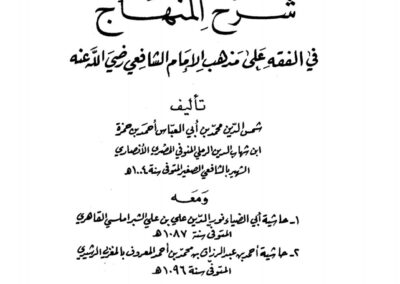 شرح المنهاج
في الفقه على مذهب الإمام الشافعي رضي الله عنه
تأليف
شمس الدين محمد بن أبي العباس أحمد بن حمزة
ابن شهاب الدين الرملي المنوفي المصري الأنصاري
الشهير بالشافعي الصغير المتوفى سنة ١٠٠٤هـ
ومعه
١- حاشية أبي الضياء نور الدين علي بن علي الشبراملسي القاهري
المتوفى سنة ١٠٨٧هـ
٢- حاشية أحمد بن عبد الرزاق بن محمد بن أحمد المعروف بالمغربي الرشيدي
المتوفى سنة ١٠٩٦هـ